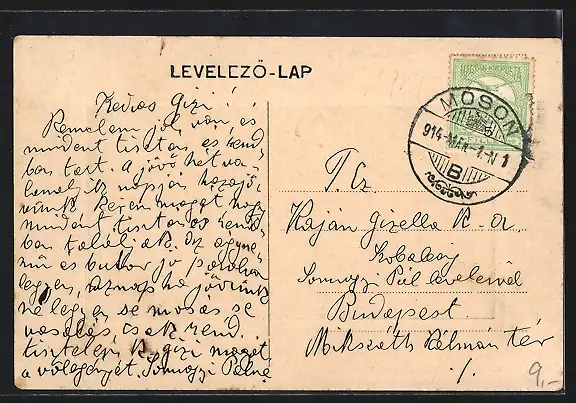 LEVELEZŐ-LAP
MOSON
914 MÁR
B
Kedves Gizi!
Remélem jól van, és
mindent tisztán és rend,
ban tart. A jövő hét va,
lamelyik napján hazajö,
vünk. Kérem magát hogy
mindent tisztán és rend,
ban találjak. Az ágyne,
mü és butor jó porolva
legyen, aznap ha jövünk
ne legyen se mosás se
vasalás, csak rend.
tisztelem K. Gizi magát
a vőlegényét. Somogyi Pálné
T. Cz.
Kaján Gizella K. a.
Somogyi Pál
Budapest.
Mikszáth Kálmán tér
9,-